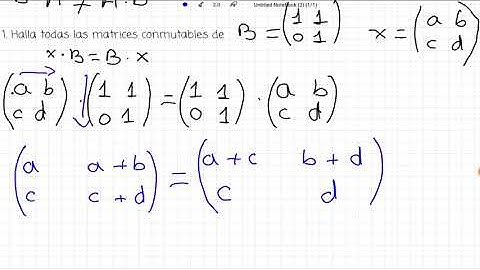 Untitled Notebook (2) (1/1)
1. Halla todas las matrices conmutables de B = (1 1 0 1) x = (a b c d)
x · B = B · x
(a b c d) · (1 1 0 1) = (1 1 0 1) · (a b c d)
(a a+b c c+d) = (a+c b+d c d)